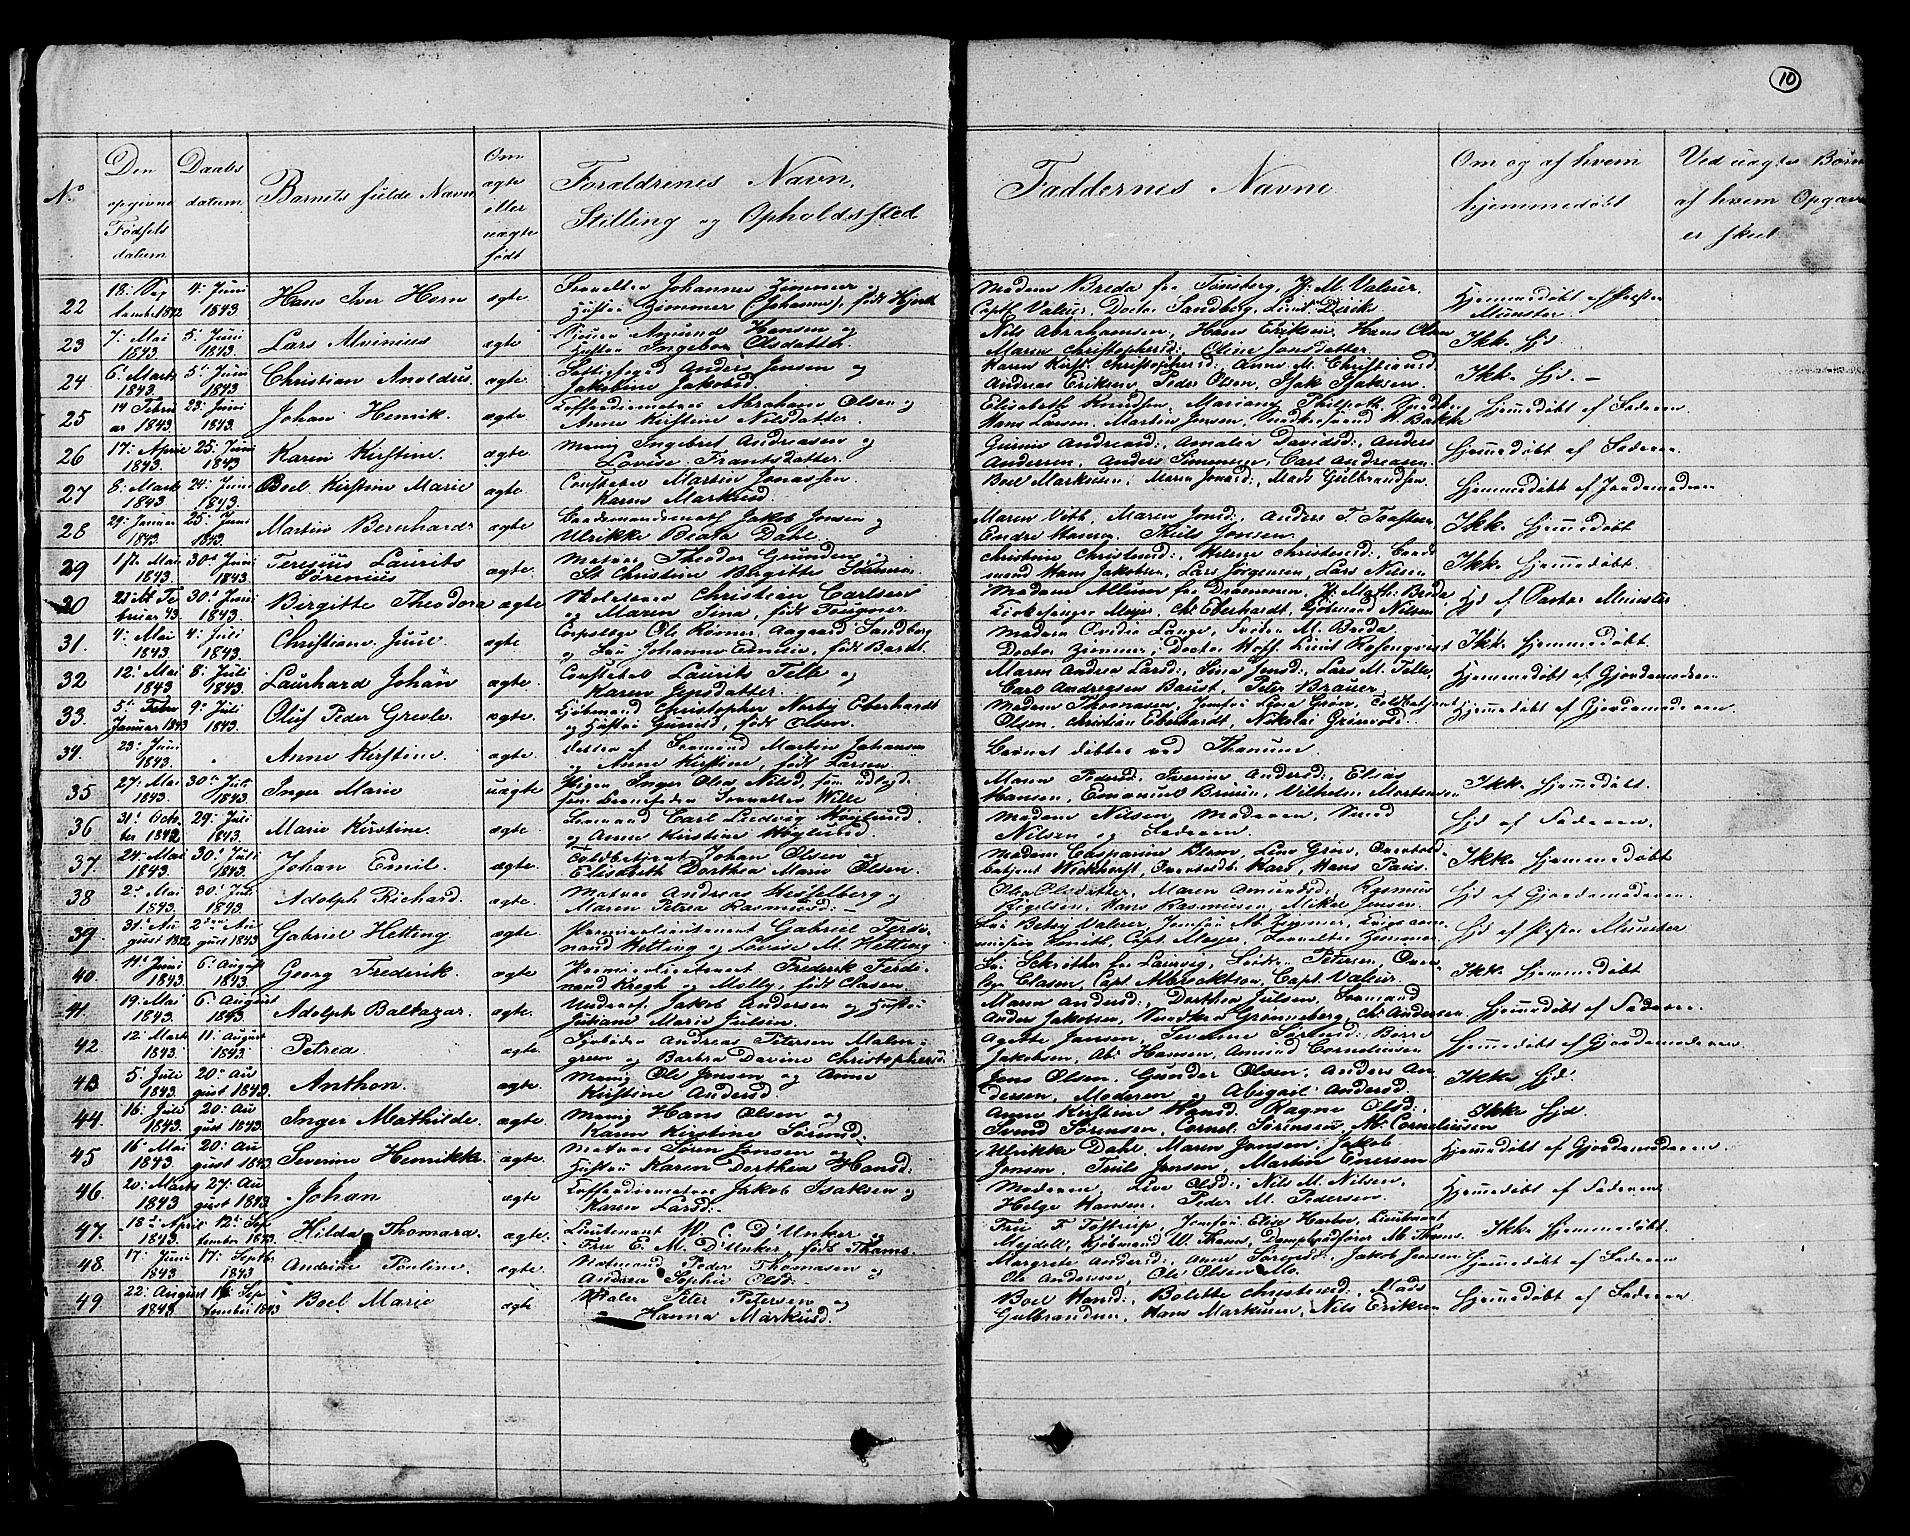 10
No
Den opgivne Fødsels datum
Daabs datum
Barnets fulde Navn
Om ægte eller uægte født
Forældrenes Navn, Stilling og Opholdssted
Faddernes Navne
Om og af hvem hjemmedøbt
Ved uægte Børn af hvem Opgaven er skeet
22 18: September 1842 4: Juni 1843 Hans Iver Hern ægte Johannes Zimmer og Hustru Zimmer (Johanne), født Hjorth
Madam Breda fra Tønsberg, J. M. Valeur, Capt Valeur, Doctor Sandberg, Lieut Dirik Hjemmedøbt af Præsten Munster.
23 7: Mai 1843 5: Juni 1843 Lars Alvinius ægte Amund Hansen og Hustru Ingebor Olsdatter
Nils Abrahamsen, Hans Eriksen, Hans Olsen Maren Christophersd: Oline Jonsdatter. Ikke Hjd
24 6: Marts 1843. 5: Juni 1843. Christian Anoldus ægte. Anders Jensen og Jakobine Jakobsd.
Karen Kirst: Christophersd:, Anne M. Christiansd Andreas Eriksen, Peder Olsen, Isak Isaksen. Ikke Hjd. –
25 14 Februar 1843. 23: Juni 1843. Johan Henrik. ægte: Coffardiematros Abraham Olsen og Anne Kirstine Nilsdatter.
Elisabeth Knudsen, Mariane Hans Larsen, Martin Jensen, W. Bakke Hjemmedøbt af Faderen.
26 17: April 1843 25: Juni 1843 Karen Kirstine. ægte. Ingebret Andreasen og Lovise Frantsdatter
Andreasd:, Amalia Davidsd:, Anders Andersen, Anders Simonsen, Carl Andreasen. Hjemmedøbt af Faderen.
27 8: Marts 1843 24: Juni 1843. Boel Kirstine Marie ægte Constabel Martin Jonassen. Karen Markusd.
Boel Markusen, Maren Jonasd:, Mads Gulbrandsen. Hjemmedøbt af Jordemoderen
28 29: Januar 1843. 25: Juni 1843. Martin Bernhard ægte Baadsmandsmat Jakob Jensen og Ulrikke Beata Dahl.
Maren Veth, Maren Jensd, Anders T. Endre Hansen, Thiuls Jensen. Ikke Hjemmedøbt
29 17: Mai 1843. 30: Juni 1843. Teresius Laurits Sørenius ægte. Matros Theodor Gundersen og St. Christine Birgitte
Christine Christensd:, Helene Christensd:, Hans Jakobsen, Lars Jørgensen, Lars Nilsen Ikke Hjemmedøbt.
30 Februar 43 30: Juni 1843. Birgitte Theodora ægte Christian Carlsen og Maren Tina, født
Madam fra Drammen, J: Math: Breda Kirkesanger Meyer, Chr Eberhardt, Kjøbmand Nilsen Hjd af Pastor Munster
31. 4: Mai 1843. 4: Juli 1843. Christiane Juul ægte Corpslæge Ole Rømer Aagaard Sandberg og Fru Johanne Emelie, født Barth
Madam Ovidia Lange, Frøken M. Breda. Doctor Zimmer, Doctor Hoff, Lieut Rosenqvist Ikke Hjemmedøbt
32 12: Mai 1843 8: Juli 1843. Laurhard Johan ægte. Constabel Laurits Telle og Karen Jepsdatter.
Maren Andrea Larsd:, Sina Jensd:, Lars M. Telle, Carl Andreasen Baust, Peter Brauer. Hjemmedøbt af Gjordemoderen
33. 5: Januar 1843 9: Juli 1843. Oluf Peder Grevle. ægte. Kjøbmand Christopher Nerby Eberhardt og Hustru Gunild, født Olsen.
Madam Thomasen, Jomfru Lina Grøn, Toldbetjent Olsen, Christian Eberhardt, Nikolai Grimsød. Hjemmedøbt af Gjordemoderen.
34. 23: Juni 1843. " Anne Kirstine ægte. datter af Sømand Martin Johansen og Anne Kirstine, født Larsen
Barnet døbtes ved Thamune.
35 27: Mai 1843 30: Juli 1843 Inger Marie uægte Pigen Inger Olea Nilsd, som udlagd: som Barnefader Wille
Maren Pedersd:, Iverine Andersd:, Elias Hansen, Emanuel Bruun, Vilhelm Mortensen Ikke Hjemmedøbt.
36 31: October 1842 29: Juli 1843. Marie Kirstine. ægte. Sømand Carl Ludvig Høglund og Anne Kirstine Høglund.
Madam Nilsen, Moderen, Svend Nilsen og Faderen. Hjd af Faderen.
37 24: Mai 1843. 30: Juli 1843. Johan Emil. ægte. Toldbetjent Johan Olsen og Elisabeth Dorthea Marie Olsen.
Madam Casparine Blom, Line Grøn, Hans Paus. Ikke Hjemmedøbt
38 2: Mai 1843. 30: Juli 1843. Adolph Richard. ægte. Matros Andreas Hesselberg og Maren Petrea Rasmusd: –
Olea Olsdatter, Maren Amundsd:, Rasmus Hans Rasmusen, Mikal Jensen. Hjd af Gjordemoderen.
39. 31: August 1842 2den August 1843 Gabriel Hetting ægte. Premierlieutenant Gabriel Ferdinand Hetting og Lovise M. Hetting
Fru Betzy Valeur, Jomfru M. Zimmer, Capt. Meyer, Zimmer Hjd af Pastor Munster
40. 11: Juni 1843. 6: August 1843. Georg Frederik. ægte Premierlieutenant Frederik Ferdinand Kregh og Molly, født Clasen.
Fru Schrøther fra Laurvig, Frøken Petersen, Clasen, Capt Albrecktson, Capt. Valeur. Ikke Hjemmedøbt
41. 19: Mai 1843. 6: August 1843. Adolph Baltazar. ægte. Underof. Jakob Andersen og Hustru Juliane Marie Julsen.
Maren Andersd:, Dorthea Julsen, Sømand Anders Jakobsen, Snedker Grønneberg, Chr. Andersen Hjemmedøbt af Faderen.
42 12: Marts 1843. 11: August 1843. Petrea ægte. Andreas Petersen Malmgreen og Barbra Davine Christophersd:
Agethe Jansen, Severine Sørensd:, Børre Jakobsen, Abr Hansen, Amund Corneliusen Hjemmedøbt af Gjordemoderen.
43 5: Juli 1843. 20: August 1843. Anthon. ægte. Ole Jensen og Anne Kirstine Andersd.
Jens Olsen, Gunder Olsen, Anders Andersen, Moderen og Abigail Andersd. Ikke Hjd:
44. 16: Juli 1843. 20: August 1843. Inger Mathilde. ægte. Hans Olsen og Karen Kirstine Sørensd.
Anne Kirstine Hansd. Ragne Olsd: Svend Sørensen, Cornel. Sørensen, M. Corneliusen Ikke Hjd
45 16: Mai 1843. 20: August 1843 Severine Henrikke. ægte. Matros Søren Jensen og Hustru Karen Dorthea Hansd:
Ulrikke Dahl, Maren Jonsen, Jakob Jonsen, Truls Jonsen, Martin Enersen Hjemmedøbt af Gjordemoderen.
46. 20: Marts 1843 27: August 1843 Johan ægte Coffardiematros Jakob Isaksen og Karen Larsd: –
Moderen, Live Olsd:, Nils M. Nilsen, Helge Hansen, Peder M. Pedersen. Hjemmedøbt af Faderen
47. 18: April 1843. 12: September 1843. Hilda Thomara. ægte. Lieutenant W. C. D'Unker og Fru E. M. D'Unker, født Thams.
Fru F Tostrup, Jomfru Elise Herbo, Lieutenant Mejdell, Kjøbmand W. Thams, M. Thams. Ikke Hjemmedøbt.
48. 17: Juni 1843 17: Septb: 1843 Andrine Pouline. ægte. Matmand Peder Thomasen og Andrea Sophie Olsd: –
Margrete Andersd:, Ane Sørensd:, Jakob Jensen Ole Andersen, Ole Olsen Mo. Hjemmedøbt af Faderen
49 22: August 1843. 16 September 1843 Boel Marie ægte Maler Peter Petersen og Hanna Markusd.
Boel Hansd:, Bolette Christensd:, Mads Gulbrandsen, Hans Markusen, Nils Eriksen Hjemmedøbt af Faderen